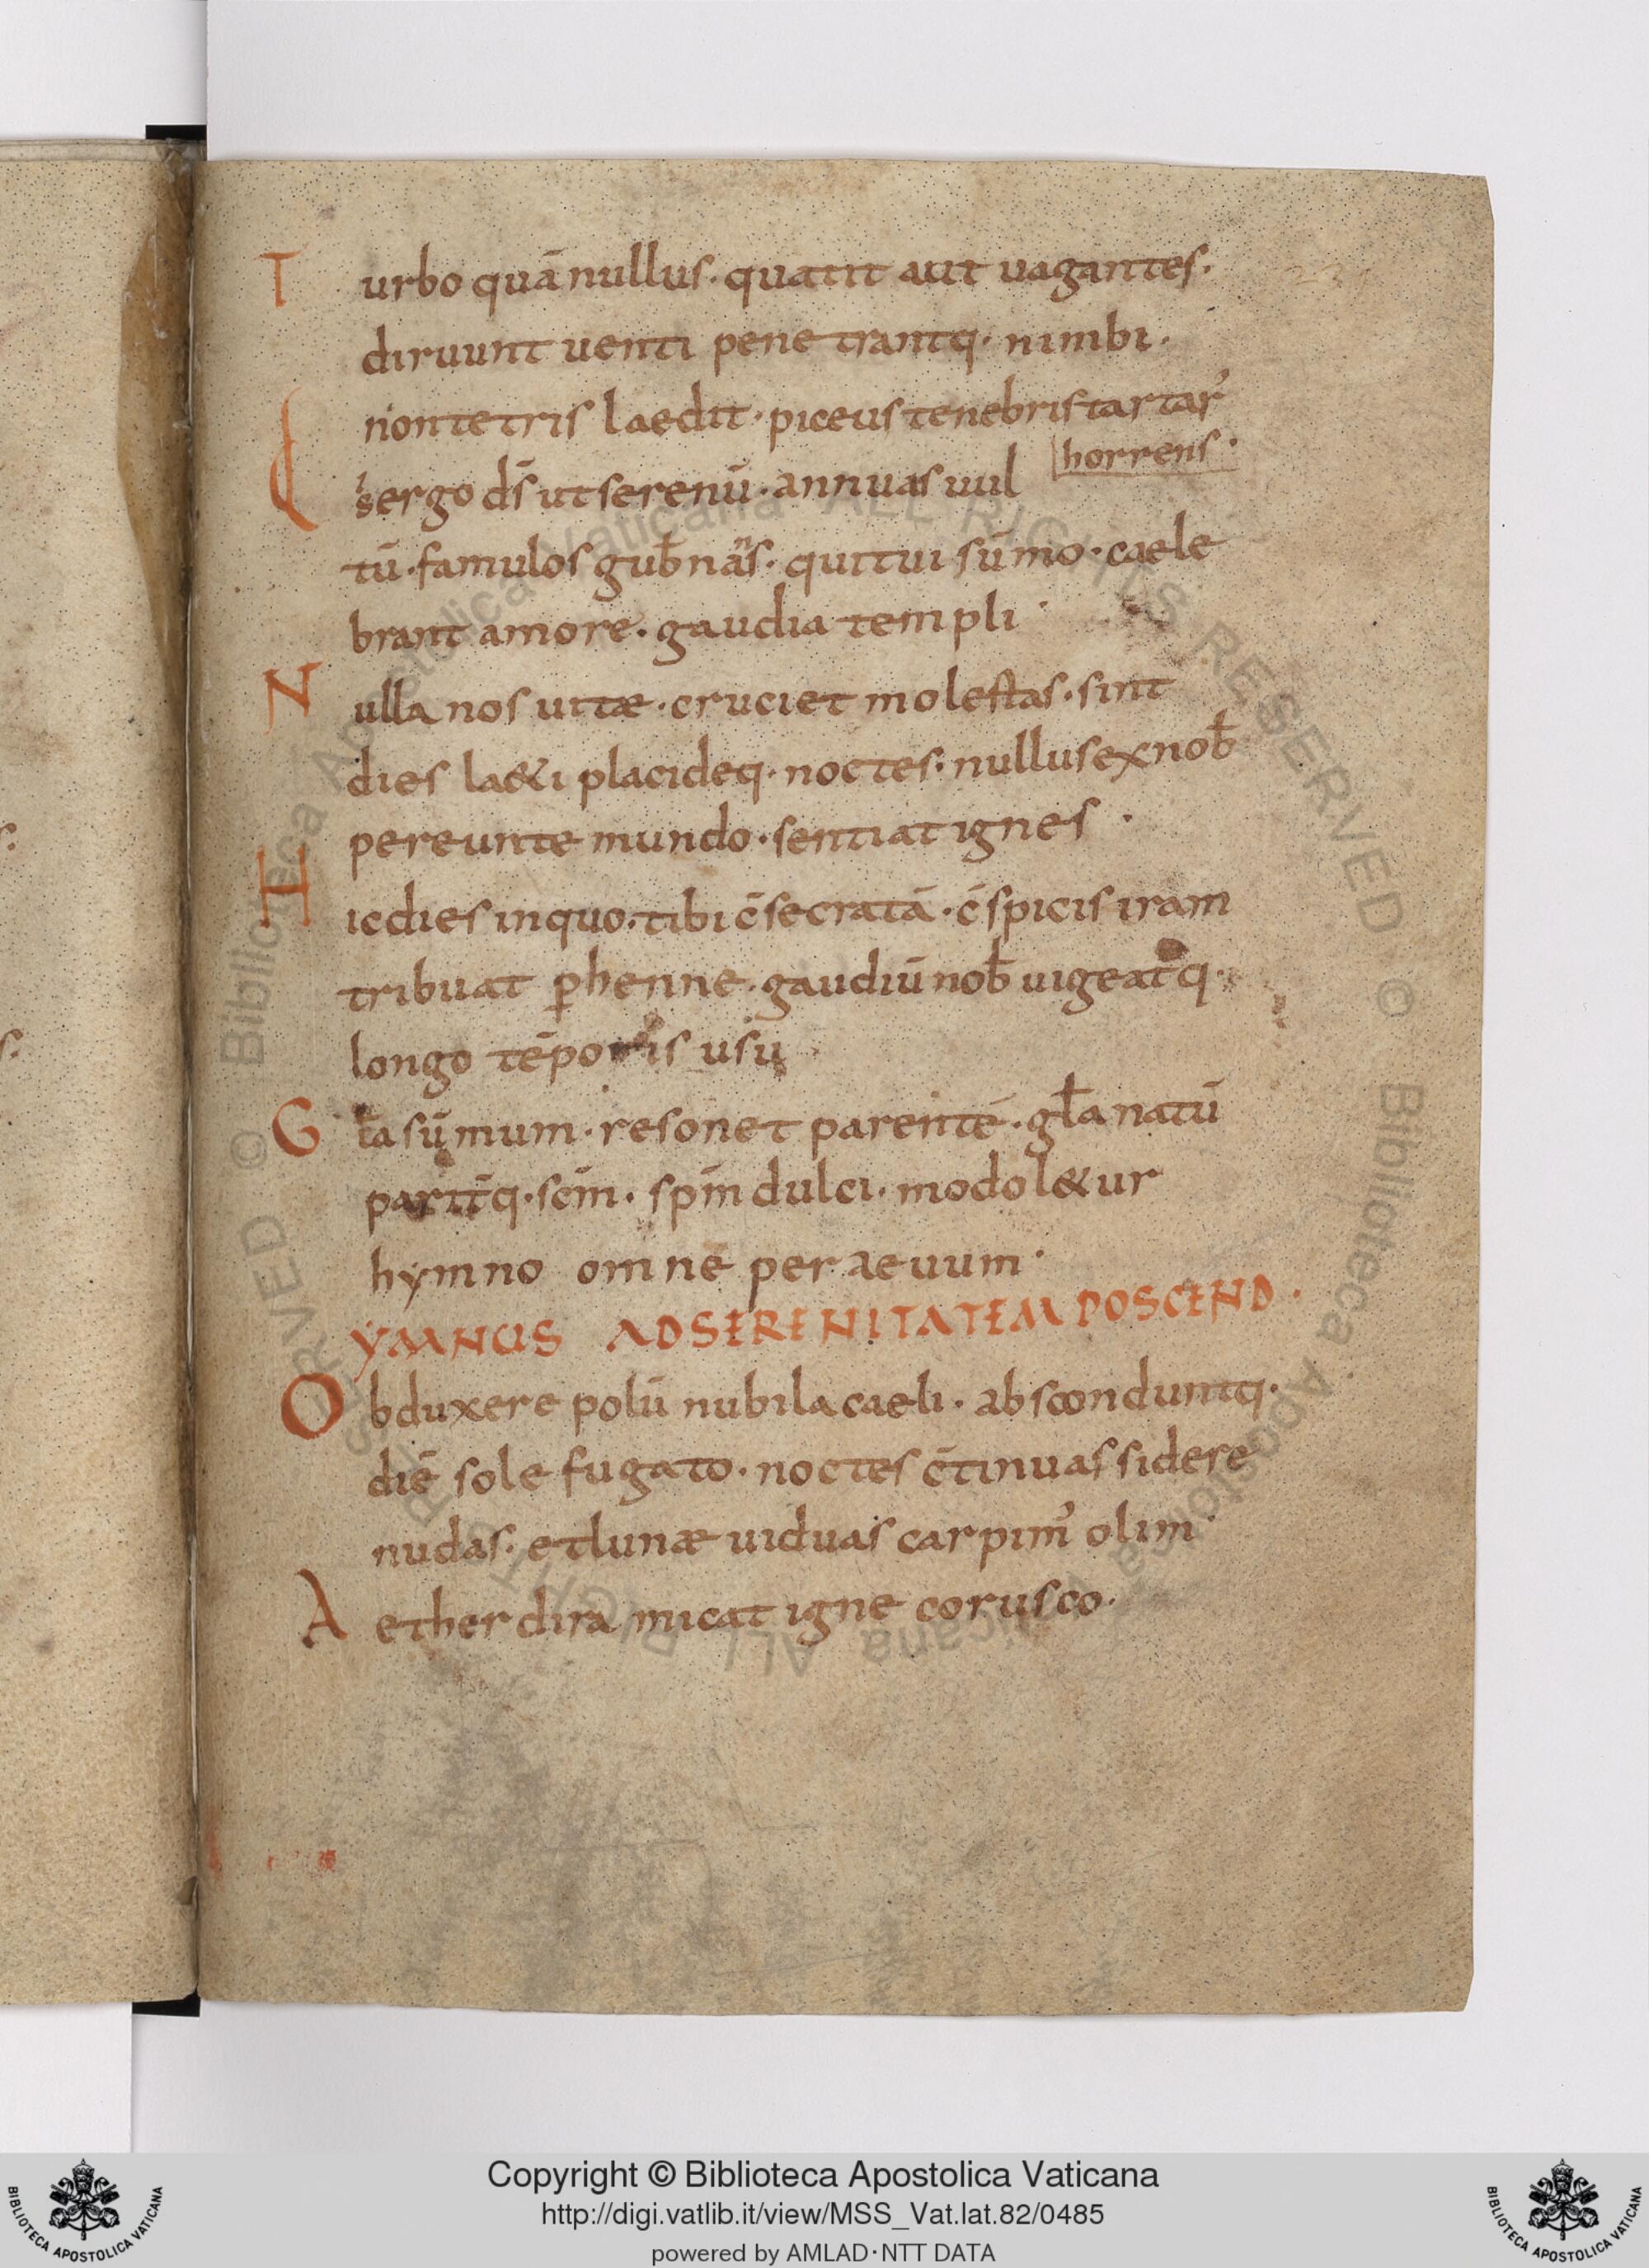 Turbo quā nullus · quatit aut uagantes ·
diruunt uenti penetrantq · nimbi ·
non tetris laedit · piceus tenebris tartar᾽
horrens ·
sergo ds̄ ut serenū · annuas uul
tū · famulos gub̄nās · qui tui sūmo · caele
brant amore · gaudia templi ·
Nulla nos uitæ · cruciet molestas · sint
dies la&i placideq · noctes · nullus ex nob̄
pereunte mundo · sentiat ignes ·
Hic dies in quo · tibi c̄secratā · c̄spicis iram
tribuat ꝑhenne · gaudiū nob̄ uigeatq ·
longo tēporis usu ·
Gła sūmum · resonet parentē · gła natū
paritq̄ · sc̄m · sp̄m dulci · modol&ur
hymno omne per aeuum ·
YMNUS AD SERENITATEM POSCEND ·
Obduxere polū nubila caeli · absconduntq ·
diē sole fugato · noctes c̄tinuas sidere
nudas · et lunæ uiduas carpim᾽ olim ·
Aether dira micat igne corusco ·
© Biblioteca Apostolica Vaticana ALL RIGHTS RESERVED © Biblioteca Apostolica Vaticana ALL RIGHTS RESERVED
Copyright © Biblioteca Apostolica Vaticana
http://digi.vatlib.it/view/MSS_Vat.lat.82/0485
powered by AMLAD·NTT DATA
BIBLIOTECA APOSTOLICA VATICANA
BIBLIOTECA APOSTOLICA VATICANA